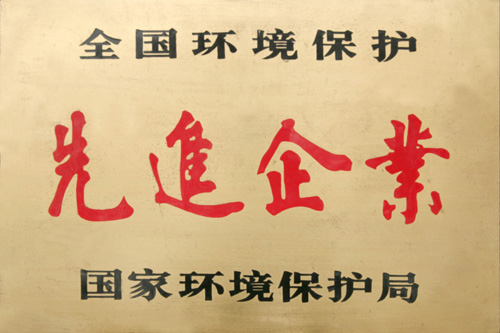 全国环境保护
先進企業
国家环境保护局